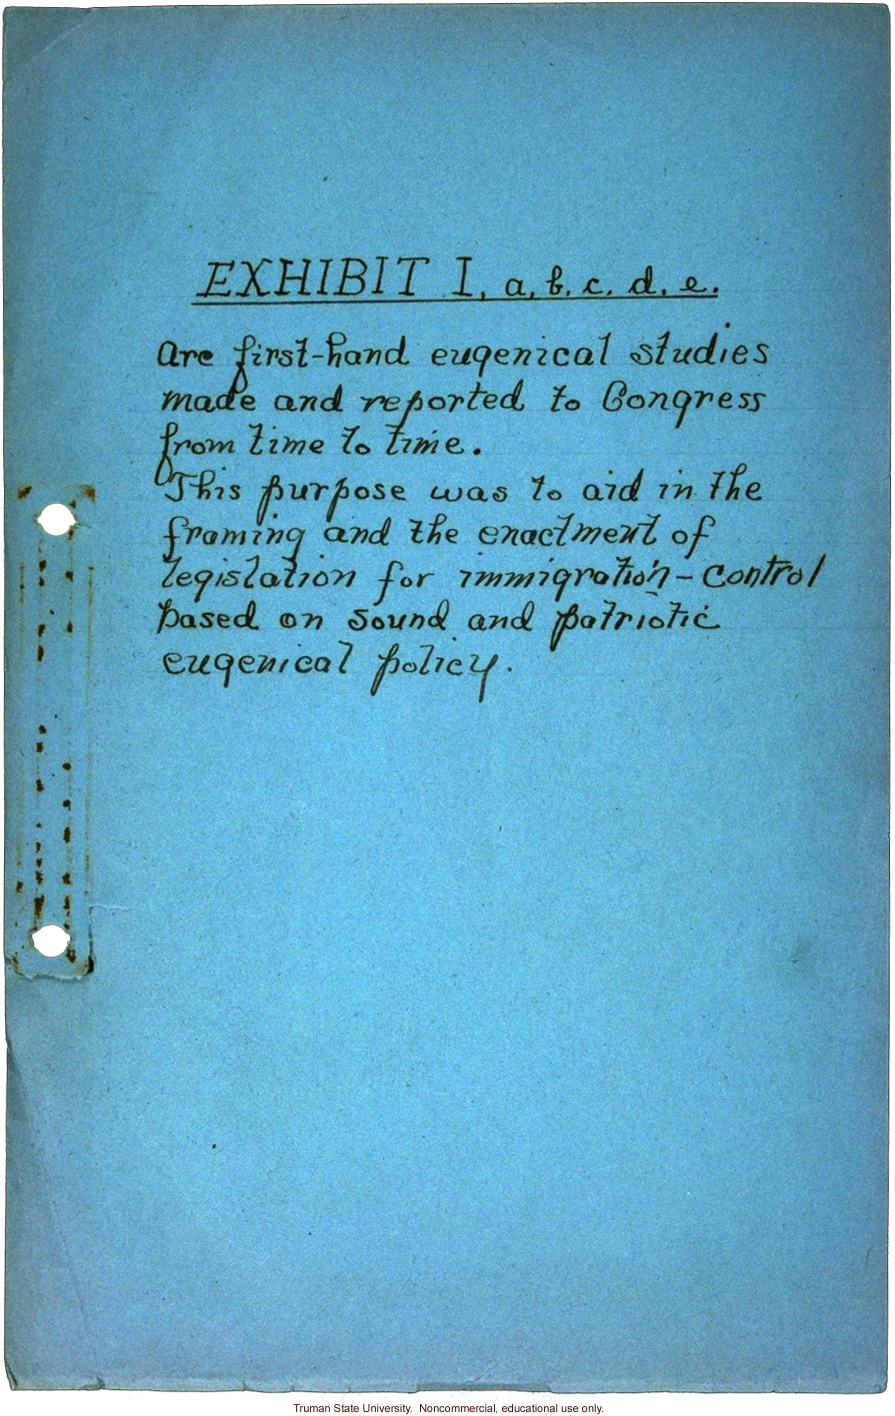 EXHIBIT I, a, b, c, d, e.
are first-hand eugenical studies
made and reported to Congress
from time to time.
This purpose was to aid in the
framing and the enactment of
legislation for immigration-control
based on sound and patriotic
eugenical policy.
Truman State University. Noncommercial, educational use only.